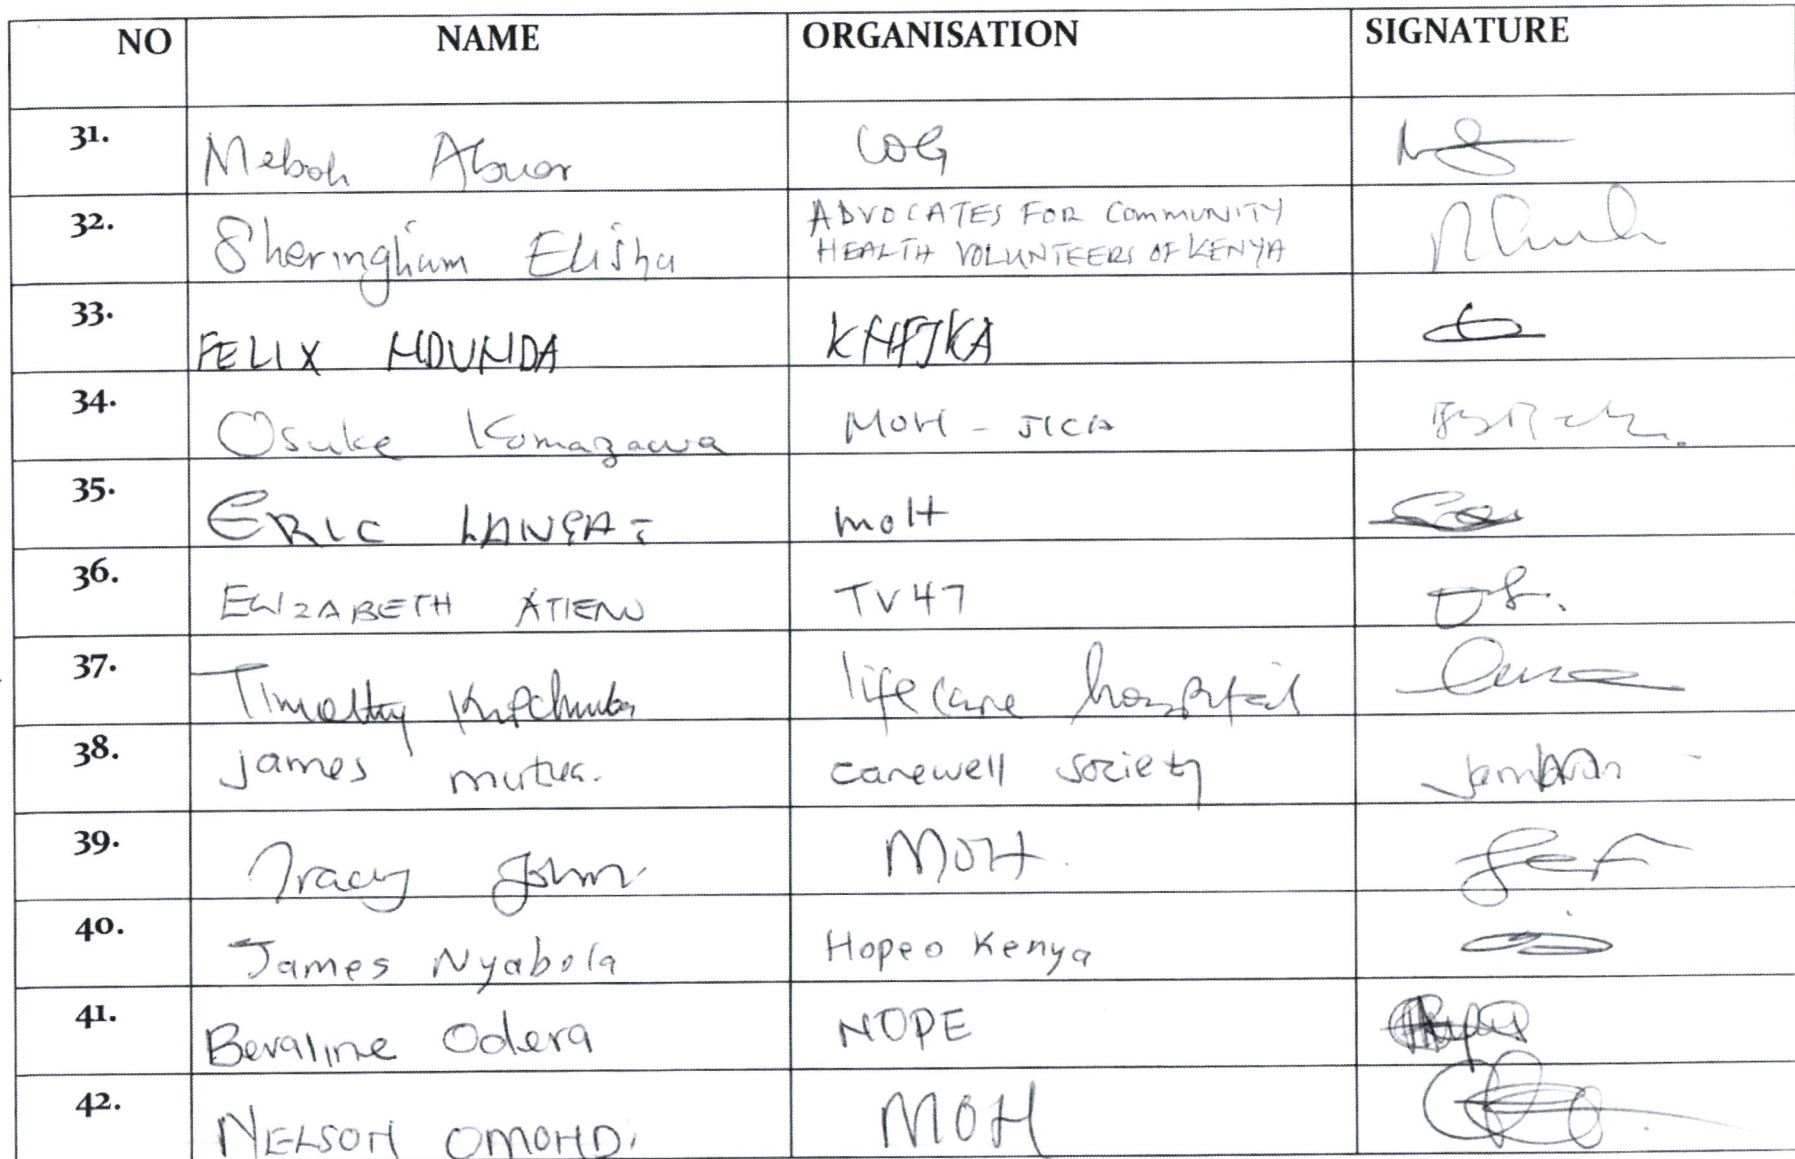 NO NAME ORGANISATION SIGNATURE
31. Meboh Abuor COG
32. Sheringham Elisha ADVOCATES FOR COMMUNITY
HEALTH VOLUNTEERS OF KENYA
33. FELIX NDUNDA
34. Osuke Komazawa MOH - JICA
35. ERIC LANGAT MOH
36. ELIZABETH ATIENO TV47
37. Timothy life care hospital
38. James mutua. carewell society
39. Tracy John. MOH.
40. James Nyabola Hopeo Kenya
41. Bevaline Odera NOPE
42. NELSON OMONDI MOH